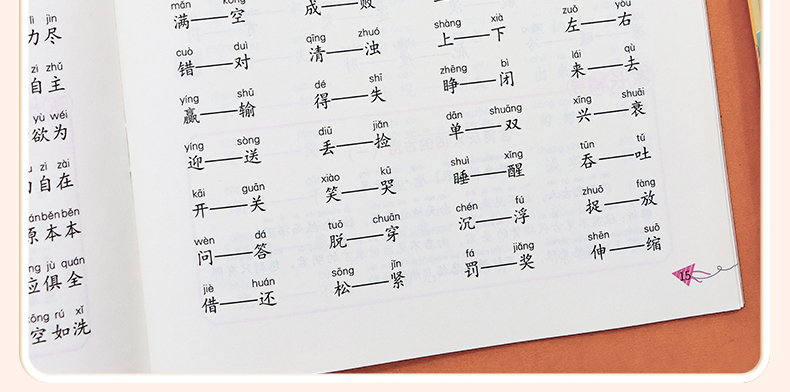 lì jìn
力尽
zì zhǔ
自主
yù wéi
欲为
zì zài
自在
běn běn
原本本
jù quán
应俱全
rú xǐ
空如洗
mǎn kōng
满——空
成——败
shàng xià
上——下
zuǒ yòu
左——右
cuò duì
错——对
qīng zhuó
清——浊
zhēng bì
睁——闭
lái qù
来——去
yíng shū
赢——输
dé shī
得——失
dān shuāng
单——双
xīng shuāi
兴——衰
yíng sòng
迎——送
diū jiǎn
丢——捡
shuì xǐng
睡——醒
tūn tǔ
吞——吐
kāi guān
开——关
xiào kū
笑——哭
chén fú
沉——浮
zhuō fàng
捉——放
wèn dá
问——答
tuō chuān
脱——穿
fá jiǎng
罚——奖
shēn suō
伸——缩
jiè huán
借——还
sōng jǐn
松——紧
15